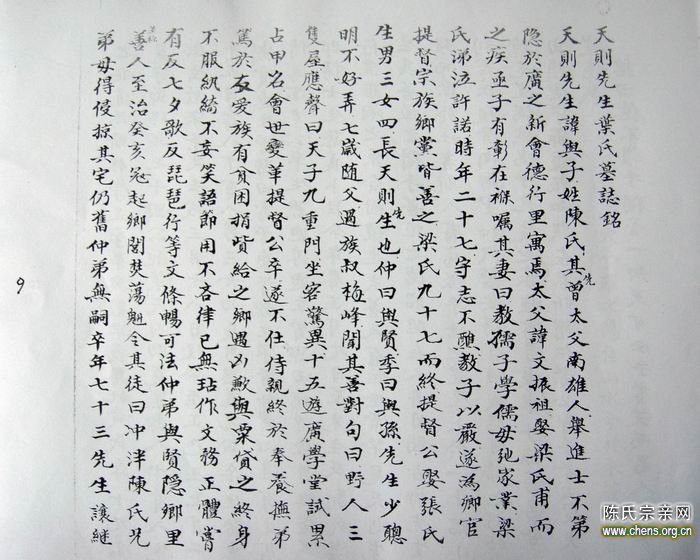 天則先生葉氏墓誌銘
天則先生諱與子姓陳氏其曾先太父南雄人舉進士不第
隐於廣之新會德行里寓焉太父諱文振祖娶梁氏甫而
之疾亟子有彰在褓嘱其妻曰教孺子學儒毋弛家業梁
氏涕泣許諾時年二十七守志不醮教子以嚴遂為鄉官
提督宗族鄉黨皆善之梁氏九十七而終提督公娶張氏
生男三女四長天則先生也仲曰與賢季曰與孫先生少聰
明不好弄七歲随父過族叔梅峰聞其善對句曰野人三
隻屋應聲曰天子九重門坐客驚異十五遊廣學堂試累
占甲名會世變革提督公卒遂不仕侍親終於奉養撫弟
篤於友愛族有貧困捐貲給之鄉遇凶歉與粟貸之終身
不服紈綺不妄笑語節用不吝律已無玷作文務正體嘗
有反七夕歌反琵琶行等文條暢可法仲弟與賢隐鄉里
善人至治癸亥冦起鄉閭焚蕩魁令其徒曰冲泮陳氏兄
弟毋得侵掠其宅仍舊仲弟無嗣卒年七十三先生讓継
9
陈氏宗亲网
www.chens.org.cn